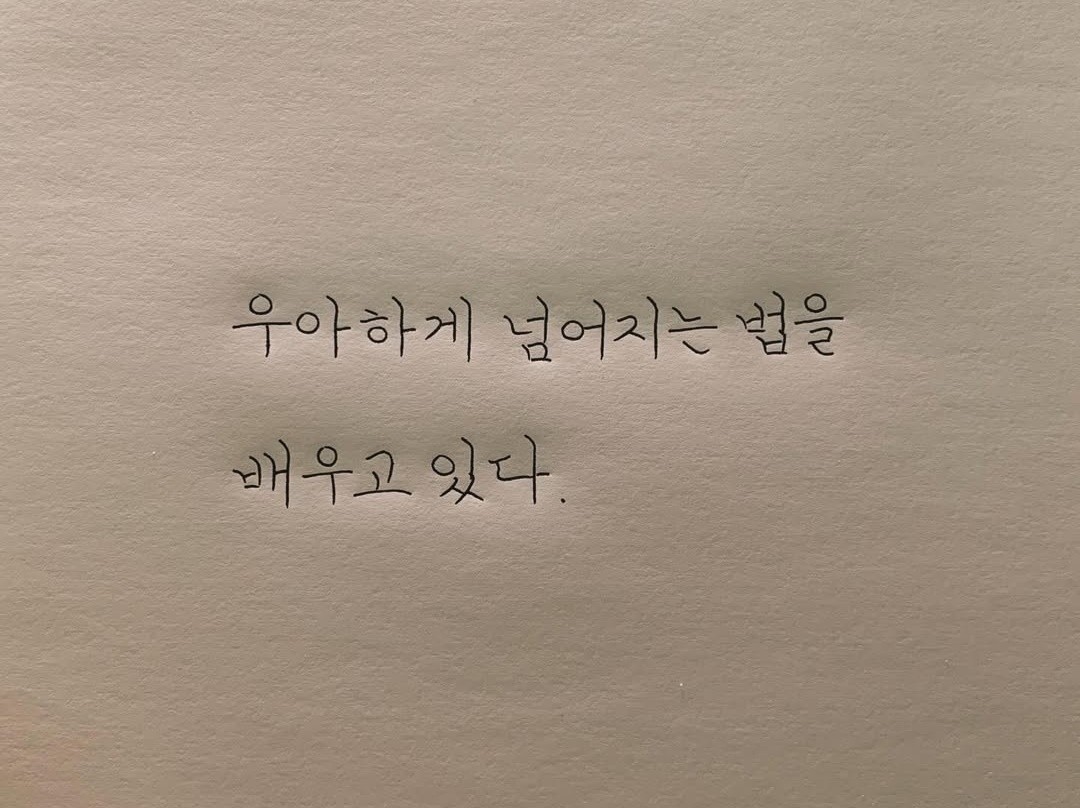 우아하게 넘어지는 법을
배우고 있다.